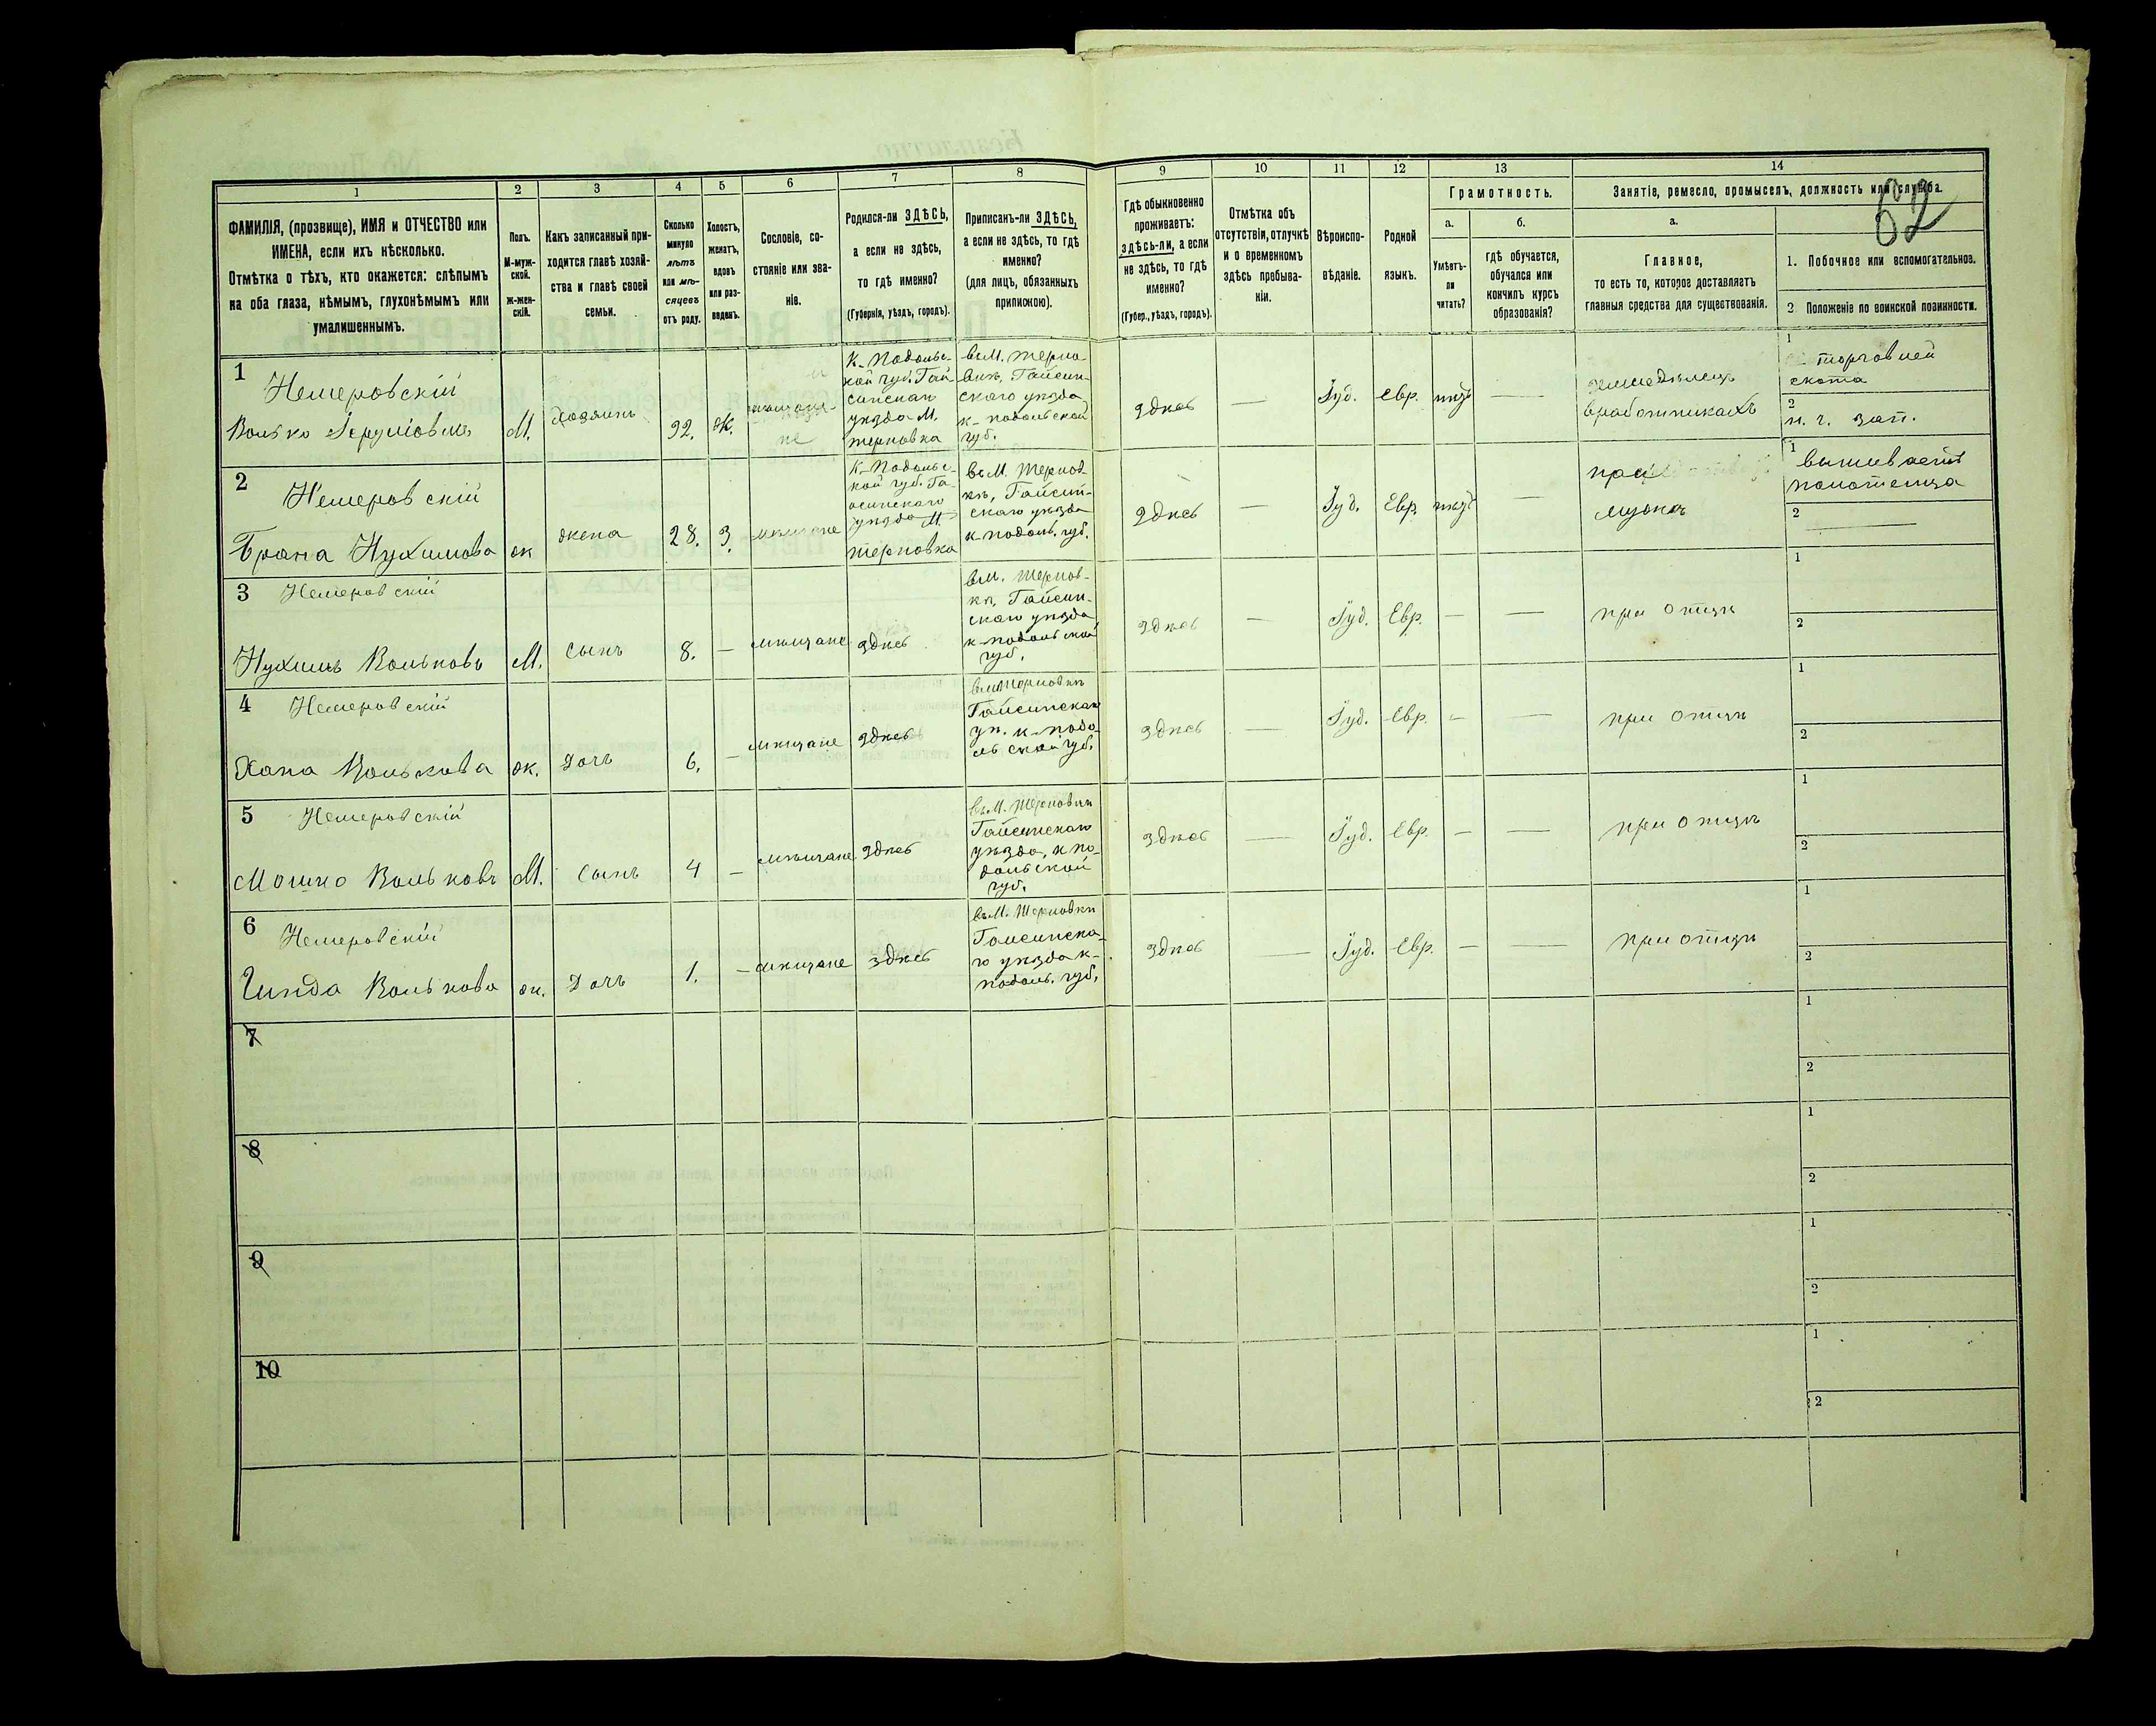 1
2
3
4
5
6
7
8
9
10
11
12
13
14
ФАМИЛІЯ, (прозвище), ИМЯ и ОТЧЕСТВО или
ИМЕНА, если ихъ нѣсколько.
Отмѣтка о тѣхъ, кто окажется: слѣпымъ
на оба глаза, нѣмымъ, глухонѣмымъ или
умалишеннымъ.
Полъ.
М-муж-
ской.
ж-жен-
скій.
Какъ записанный при-
ходится главѣ хозяй-
ства и главѣ своей
семьи.
Сколько
минуло
лѣтъ
или мѣ-
сяцевъ
отъ роду.
Холостъ,
женатъ,
вдовъ
или раз-
веденъ.
Сословіе, со-
стояніе или зва-
ніе.
Родился-ли ЗДѢСЬ,
а если не здѣсь,
то гдѣ именно?
(Губернія, уѣздъ, городъ).
Приписанъ-ли ЗДѢСЬ,
а если не здѣсь, то гдѣ
именно?
(для лицъ, обязанныхъ
припискою).
Гдѣ обыкновенно
проживаетъ:
здѣсь-ли, а если
не здѣсь, то гдѣ
именно?
(Губер., уѣздъ, городъ).
Отмѣтка объ
отсутствіи, отлучкѣ
и о временномъ
здѣсь пребыва-
ніи.
Вѣроиспо-
вѣданіе.
Родной
языкъ.
Грамотность.
а.
Умѣетъ-
ли
читать?
б.
гдѣ обучается,
обучался или
кончилъ курсъ
образованія?
Занятіе, ремесло, промыселъ, должность или служба.
62
а.
Главное,
то есть то, которое доставляетъ
главныя средства для существованія.
1. Побочное или вспомогательное.
2 Положеніе по воинской повинности.
1
Немеровскій
Волько
М.
Хозяинъ
32.
Ж.
К-Подольс-
кой губ. Гай-
синскаго
уѣзда М.
терновка
въ М. терно-
вкѣ, Гайсин-
скаго уѣзда
к-подольской
губ.
здѣсь
—
Іуд.
Евр.
—
въ работникахъ
1
торговлей
скота
2
н. г. зап.
2
Немеровскій
Брана Нухимова
ж
жена
28.
З.
мѣщане
К-Подольс-
кой губ. Га-
йсинскаго
уѣзда М.
терновка
въ М. Тернов-
кѣ, Гайсин-
скаго уѣзда
к-подоль. губ.
здѣсь
—
Іуд.
Евр.
—
при
мужѣ
1
вышиваетъ
полотенца
2
—
3
Немеровскій
Нухимъ Вольковъ
М.
сынъ
8.
—
мѣщане
здѣсь
въ М. Тернов-
кѣ, Гайсин-
скаго уѣзда
к-подольской
губ.
здѣсь
—
Іуд.
Евр.
—
—
при отцѣ
1
2
4
Немеровскій
Хана Волькова
ж.
Дочь
6.
—
мѣщане
здѣсь
въ М Терновкѣ
Гайсинскаго
уѣ. к-подо-
льской губ.
здѣсь
—
Іуд.
Евр.
—
—
при отцѣ
1
2
5
Немеровскій
Мошко Вольковъ
М.
сынъ
4
—
мѣщане
здѣсь
въ М. Терновкѣ
Гайсинскаго
уѣзда, к по-
дольской
губ.
здѣсь
—
Іуд.
Евр.
—
—
при отцѣ
1
2
6
Немеровскій
Гинда Волькова
ж.
Дочь
1.
—
мѣщане
здѣсь
въ М. Терновкѣ
Гайсинска-
го уѣзда к-
подоль. губ.
здѣсь
—
Іуд.
Евр.
—
—
при отцѣ
1
2
7
1
2
8
1
2
9
1
2
10
1
2